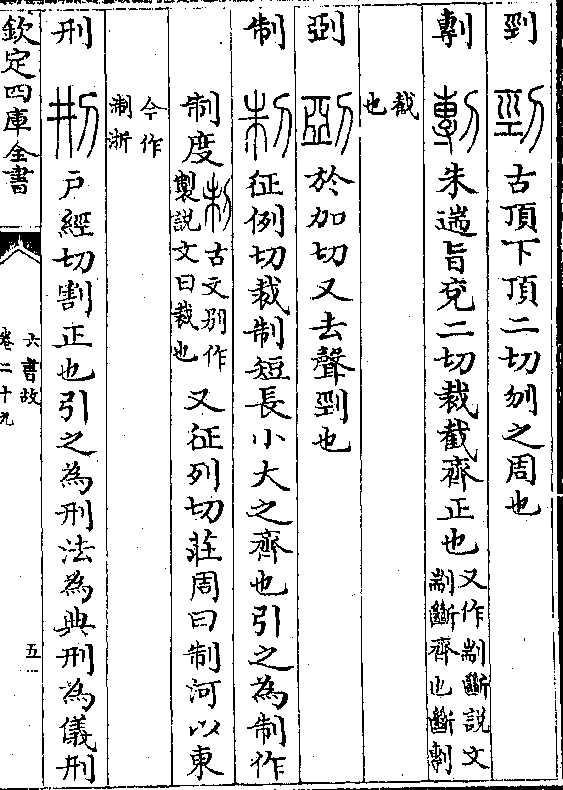 剄 古頂下頂二切刎之周也
剸 朱遄旨兗二切裁截齊正也 又作剬斷說文剬斷齊也斷剸
截也
剅 於加切又去聲剄也
制 征例切裁制短長小大之齊也引之為制作
制度 古文別作製説文曰裁也 又征列切莊周曰制河以東
今作淛浙
刑 戶經切割正也引之為刑法為典刑為儀刑
欽定四庫全書
六書故
卷二十九
五